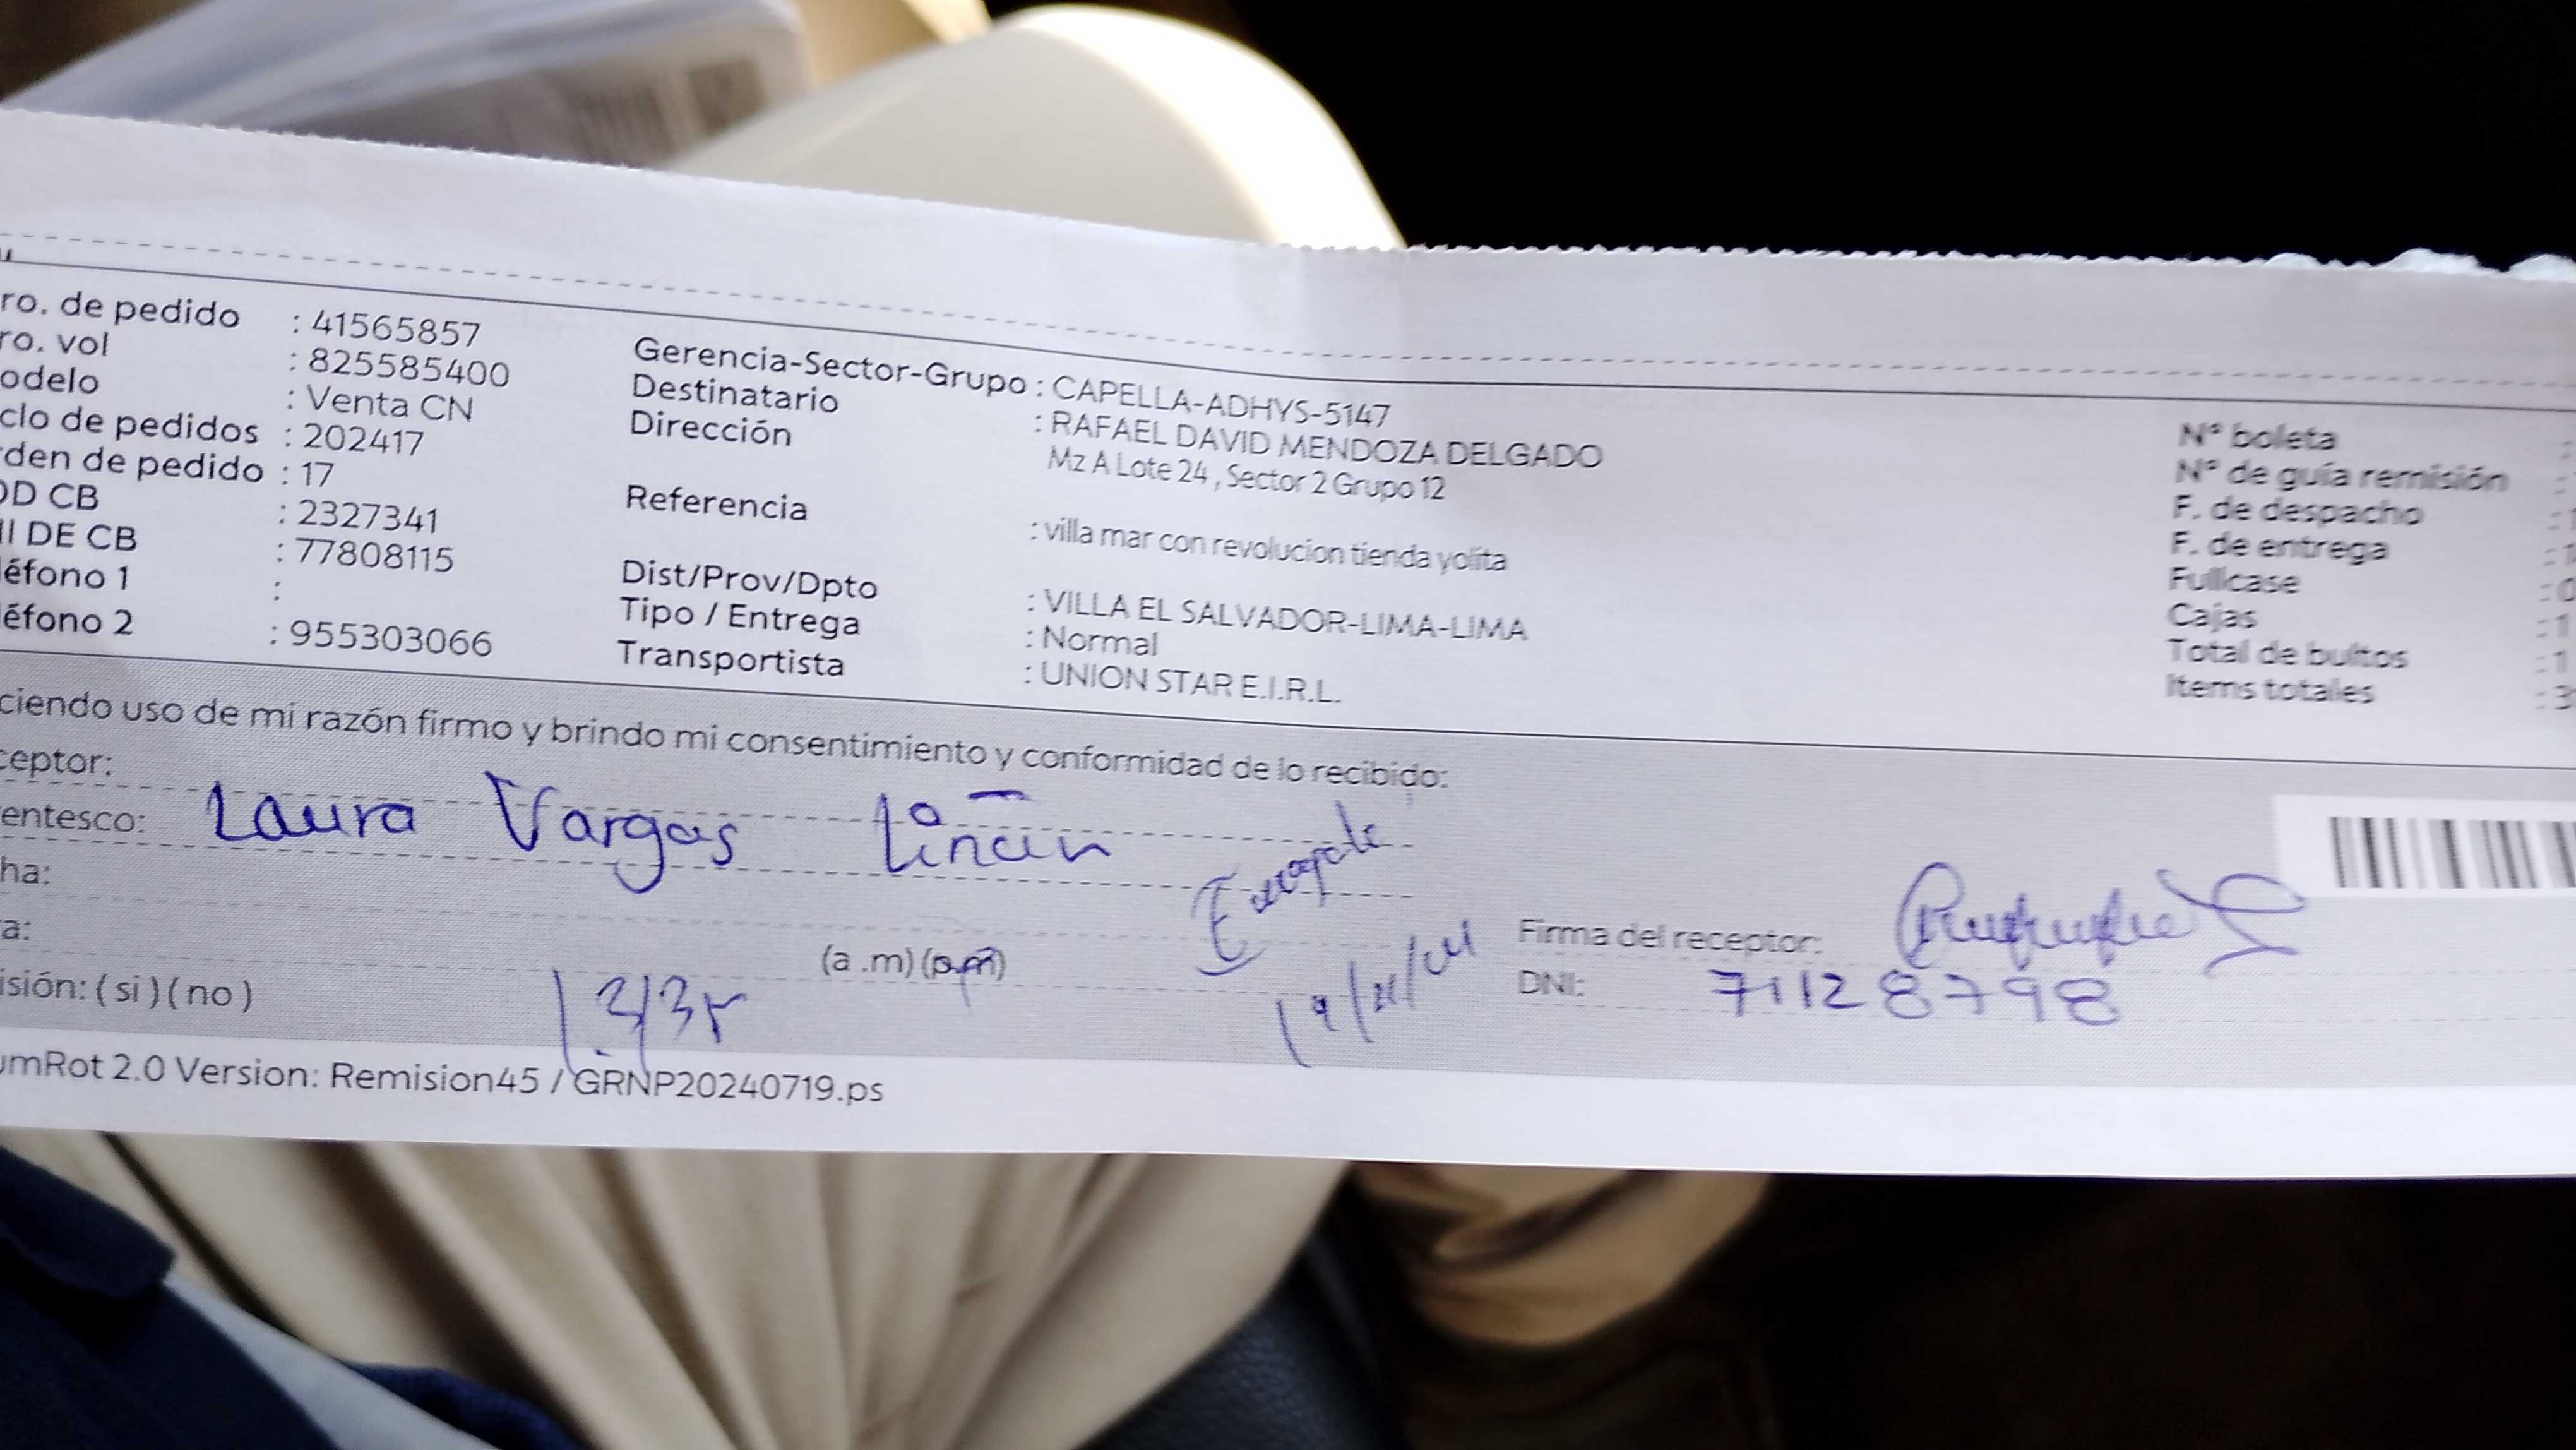 ro. de pedido : 41565857
ro. vol : 825585400
odelo : Venta CN
clo de pedidos : 202417
den de pedido : 17
OD CB : 2327341
II DE CB : 77808115
éfono 1 :
éfono 2 : 955303066
Gerencia-Sector-Grupo : CAPELLA-ADHYS-5147
Destinatario : RAFAEL DAVID MENDOZA DELGADO
Dirección Mz A Lote 24 , Sector 2 Grupo 12
Referencia : villa mar con revolucion tienda yolita
Dist/Prov/Dpto : VILLA EL SALVADOR-LIMA-LIMA
Tipo / Entrega : Normal
Transportista : UNION STAR E.I.R.L.
N° boleta :
N° de guía remisión :
F. de despacho : 1
F. de entrega : 1
Fullcase : 0
Cajas : 1
Total de bultos : 1
Items totales : 3
ciendo uso de mi razón firmo y brindo mi consentimiento y conformidad de lo recibido:
ceptor:
entesco: Laura Vargas Liñan
ha:
a: (a .m) (p.m)
isión: ( si ) ( no )
Firma del receptor:
DNI: 71128798
umRot 2.0 Version: Remision45 / GRNP20240719.ps